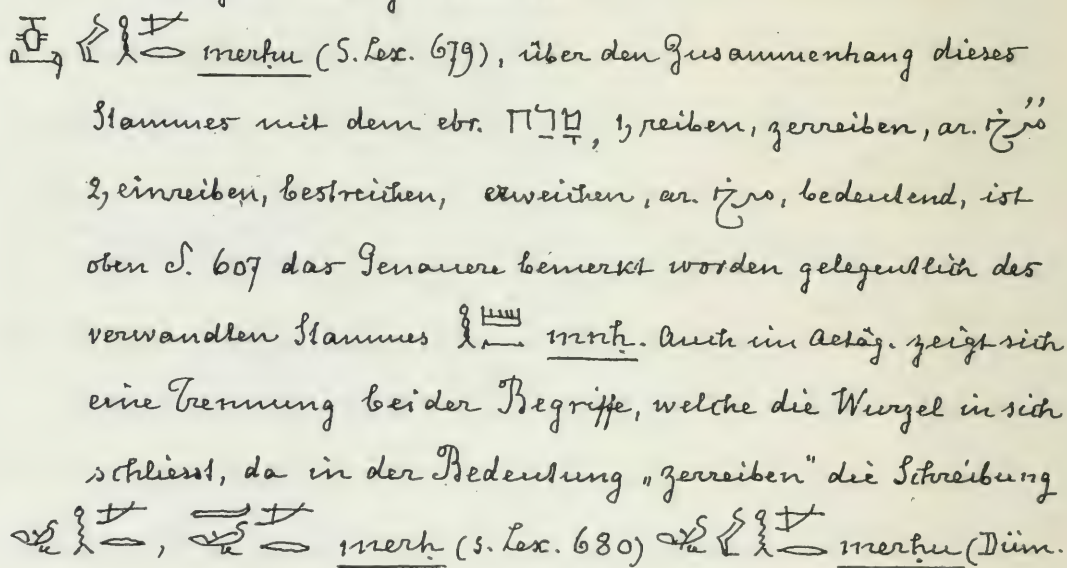 merḥu (S. Lex. 679), über den Zusammenhang dieses
Stammes mit dem ebr. מָרַח, 1, reiben, zerreiben, ar. مرخ
2, einreiben, bestreichen, erweichen, ar. مرخ, bedeutend, ist
oben S. 607 das Genauere bemerkt worden gelegentlich des
verwandten Stammes mnḥ. Auch im Aetäg. zeigt sich
eine Trennung beider Begriffe, welche die Wurzel in sich
schliesst, da in der Bedeutung „zerreiben" die Schreibung
, merḥ (s. Lex. 680) merḥu (Düm.